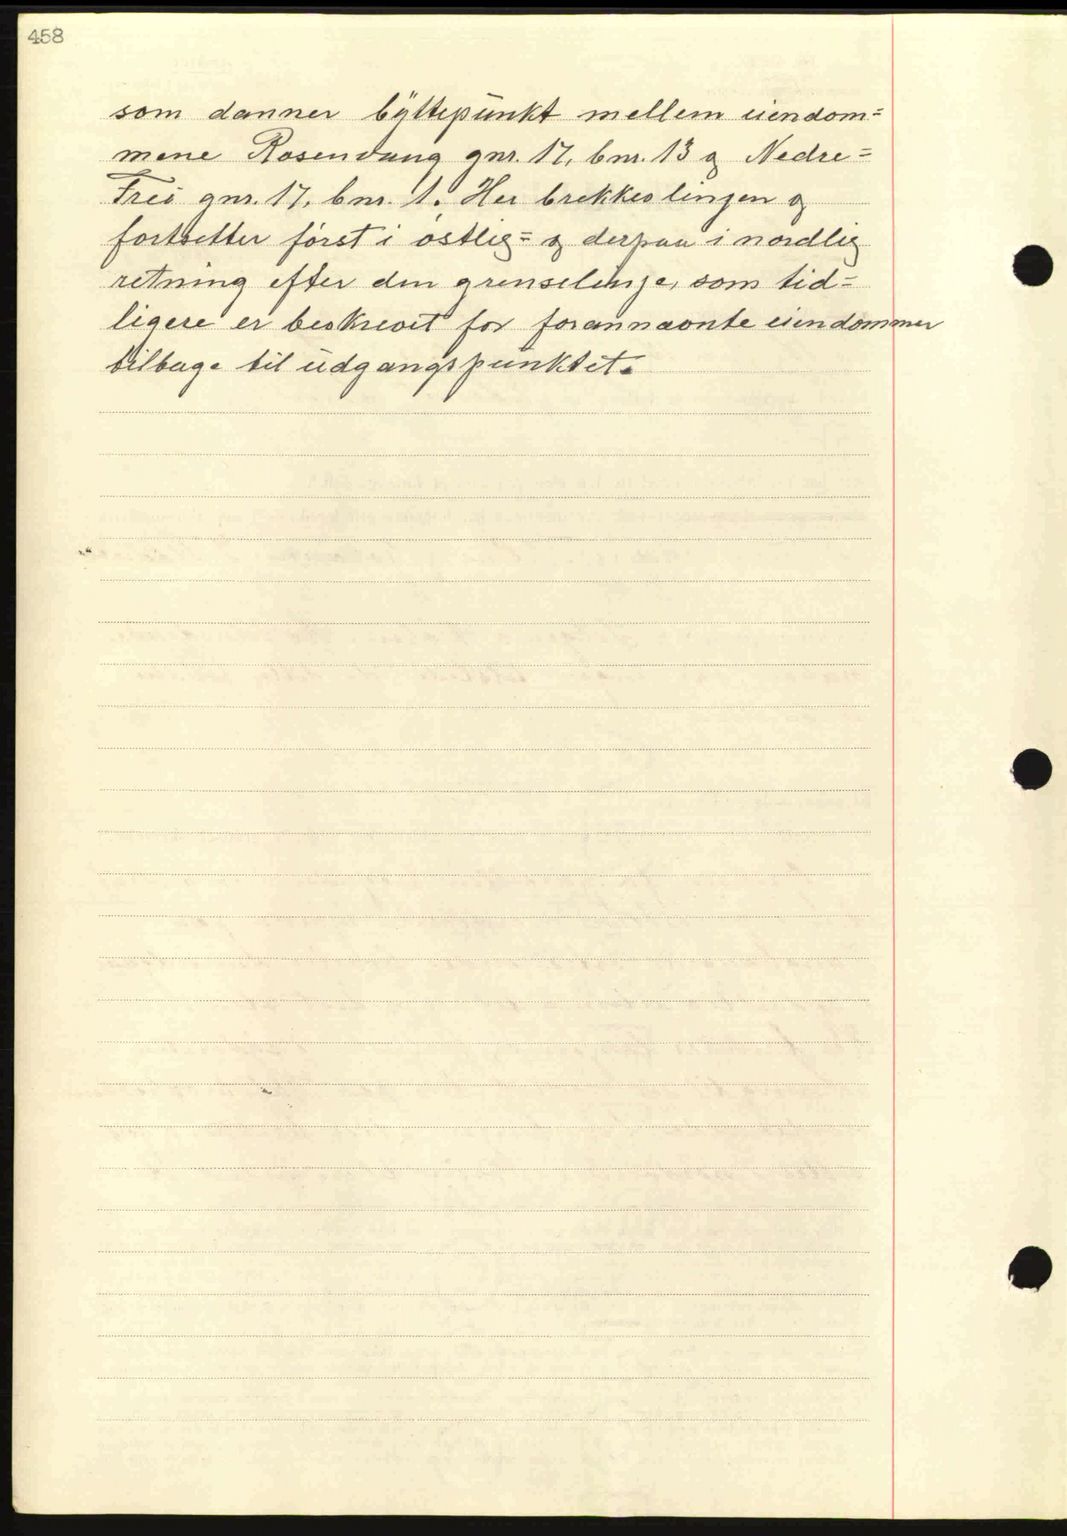 458
som danner byttepunkt mellem eiendom=
mene Rosendung gnr. 17, bnr. 13 og Nedre=
Frei gnr. 17, bnr. 1. Her brekkes linjen og
fortsetter først i østlig= og derpaa i nordlig
retning efter den grenselinje, som tid=
ligere er beskrevet for forannævnte eiendommer
tilbage til udgangspunktet.